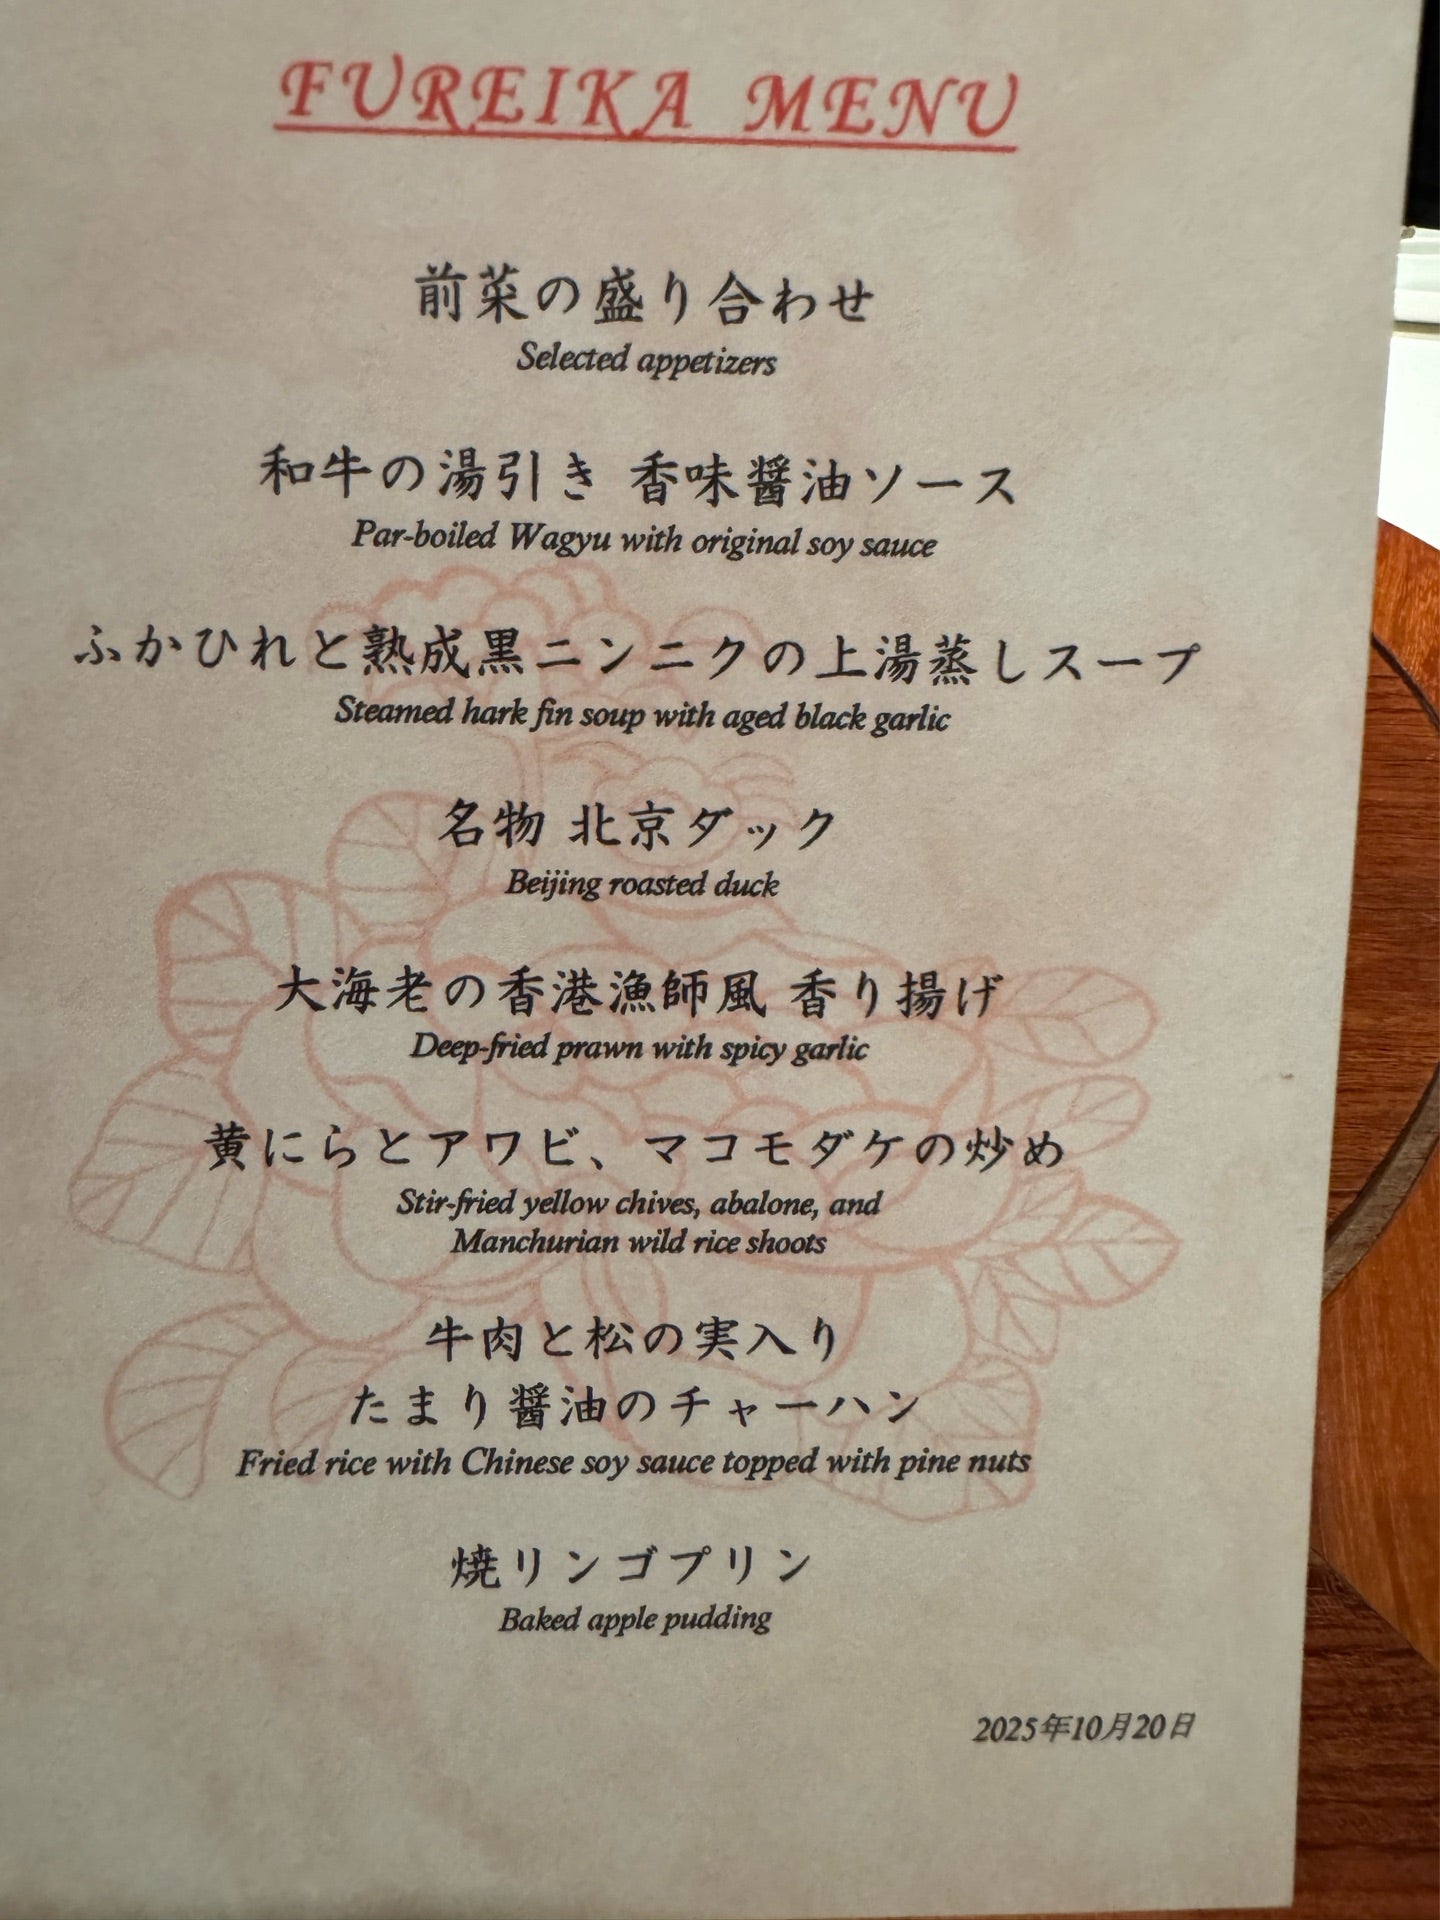 FUREIKA MENU
前菜の盛り合わせ
Selected appetizers
和牛の湯引き 香味醤油ソース
Par-boiled Wagyu with original soy sauce
ふかひれと熟成黒ニンニクの上湯蒸しスープ
Steamed hark fin soup with aged black garlic
名物 北京ダック
Beijing roasted duck
大海老の香港漁師風 香り揚げ
Deep-fried prawn with spicy garlic
黄にらとアワビ、マコモダケの炒め
Stir-fried yellow chives, abalone, and
Manchurian wild rice shoots
牛肉と松の実入り
たまり醤油のチャーハン
Fried rice with Chinese soy sauce topped with pine nuts
焼リンゴプリン
Baked apple pudding
2025年10月20日